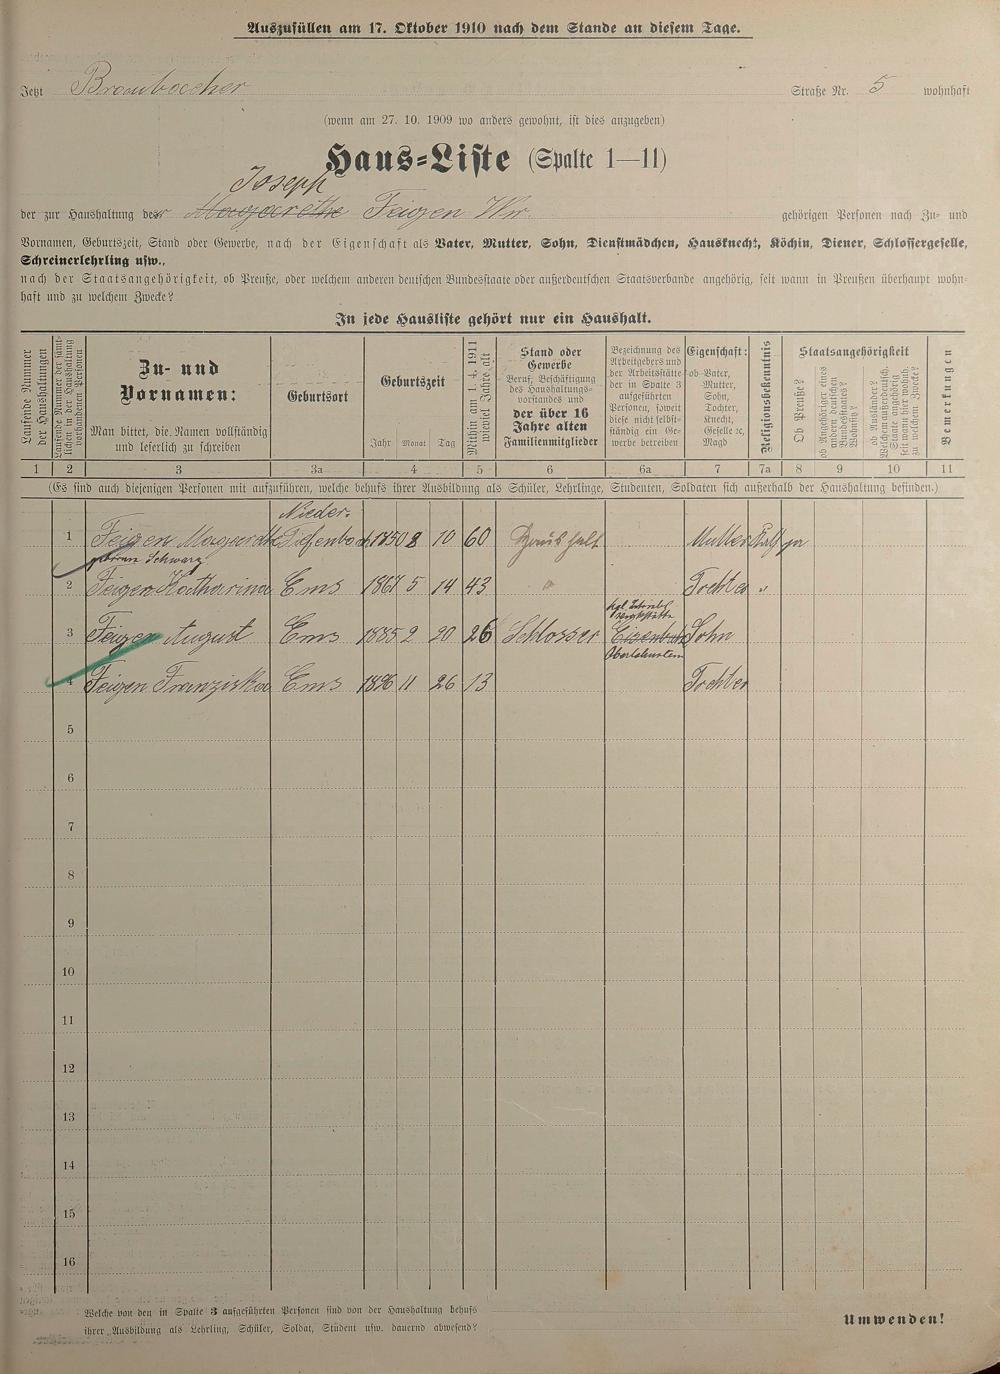 Auszufüllen am 17. Oktober 1910 nach dem Stande an diesem Tage.
Jetzt Braubacher Straße Nr. 5 wohnhaft
(wenn am 27. 10. 1909 wo anders gewohnt, ist dies anzugeben)
Haus=Liste (Spalte 1—11)
Joseph
der zur Haushaltung der Magarethe Feigen Wr. gehörigen Personen nach Zu- und
Vornamen, Geburtszeit, Stand oder Gewerbe, nach der Eigenschaft als Vater, Mutter, Sohn, Dienstmädchen, Hausknecht, Köchin, Diener, Schlossergeselle,
Schreinerlehrling usw.,
nach der Staatsangehörigkeit, ob Preuße, oder welchem anderen deutschen Bundesstaate oder außerdeutschen Staatsverbande angehörig, seit wann in Preußen überhaupt wohn-
haft und zu welchem Zwecke?
In jede Hausliste gehört nur ein Haushalt.
Laufende Nummer der Haushaltungen
Laufende Nummer der sämt-lichen in der Haushaltung vorhandenen Personen
Zu- und
Vornamen:
Man bittet, die Namen vollständig
und leserlich zu schreiben
Geburtsort
Geburtszeit
Jahr Monat Tag
Mithin am 1. 4. 1911 wieviel Jahre alt
Stand oder
Gewerbe
Beruf, Beschäftigung
des Haushaltungs-
vorstandes und
der über 16
Jahre alten
Familienmitglieder
Bezeichnung des
Arbeitgebers und
der Arbeitsstätte
der in Spalte 3
aufgeführten
Personen, soweit
diese nicht selbst-
ständig ein Ge-
werbe betreiben
Eigenschaft:
ob Vater,
Mutter,
Sohn,
Tochter,
Knecht,
Geselle ꝛc,
Magd
Religionsbekenntnis
Staatsangehörigkeit
Ob Preuße?
ob Angehöriger eines andern deutschen Bundesstaates? Wohnsitz?
ob Ausländer? Welchem außerdeutsch. Staate angehörig seit wann hier wohnh. zu welchem Zwecke?
Bemerkungen
1 2 3 3a 4 5 6 6a 7 7a 8 9 10 11
(Es sind auch diejenigen Personen mit aufzuführen, welche behufs ihrer Ausbildung als Schüler, Lehrlinge, Studenten, Soldaten sich außerhalb der Haushaltung befinden.)
Nieder.
1 Feigen Magarethe 1850 8 10 60 Haushalt Mutter Kath ja
geborene Schwarz
2 Feigen Katharina Ems 1867 5 14 43 " Tochter "
3 Feigen August Ems 1885 2 20 26 Schlosser Sohn
Oberlahnstein
4 Feigen Franziska Ems 1896 11 26 13 Tochter
5
6
7
8
9
10
11
12
13
14
15
16
Welche von den in Spalte 3 aufgeführten Personen sind von der Haushaltung behufs
ihrer Ausbildung als Lehrling, Schüler, Soldat, Student usw. dauernd abwesend?
Umwenden!